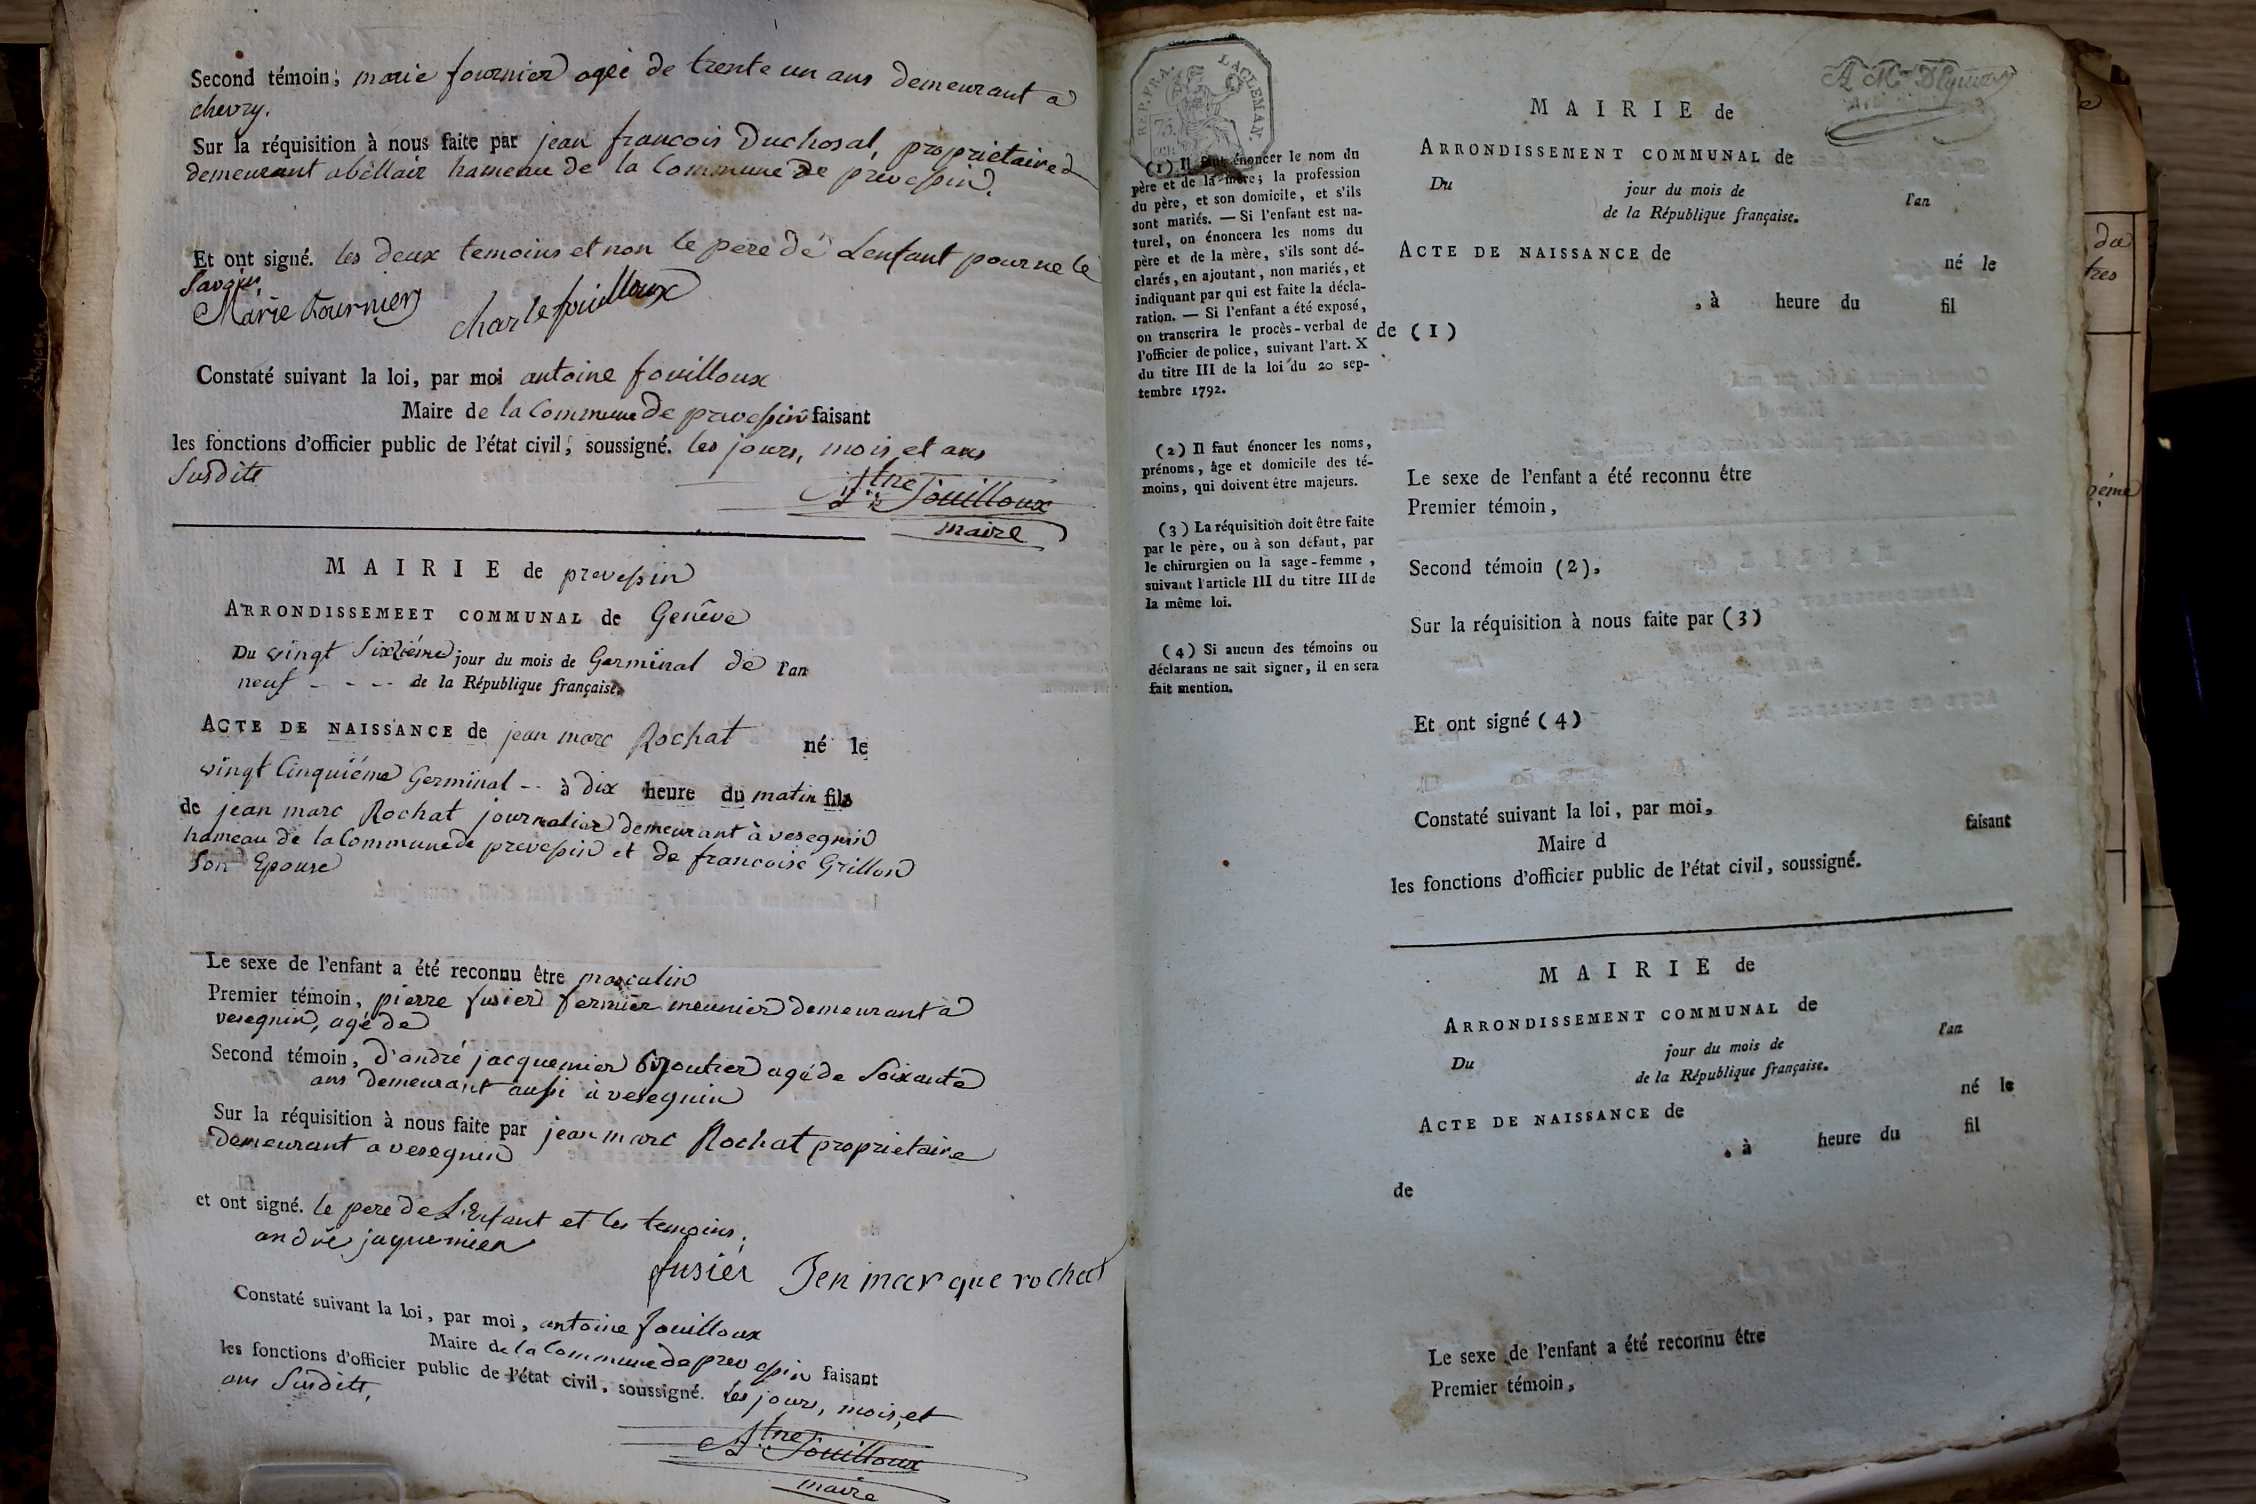 Second témoin, marie fournier agée de trente un ans demeurant a
chevry.
Sur la réquisition à nous faite par jean francois Duchosal, propriétaire
demeurant abéllair hameau de la Commune de prevessin.
Et ont signé. les deux temoins et non le pere de Lenfant pour ne le
Savoir,
Marie Fournier charle fouilloux
Constaté suivant la loi, par moi antoine fouilloux
Maire de la Commune de prevessin faisant
les fonctions d'officier public de l'état civil, soussigné. les jours, mois et ans
Susdits
Atne Fouilloux
maire
MAIRIE de prevessin
ARRONDISSEMEET COMMUNAL de Genève
Du vingt Sixziéme jour du mois de Germinal de l'an
neuf - - - de la République française.
ACTE DE NAISSANCE de jean marc Rochat né le
vingt Cinquiéme Germinal -- à dix heure du matin fils
de jean marc Rochat journalier demeurant à vesegnin
hameau de la Commune de prevessin et de francoise Grillon
Son Epouse
Le sexe de l'enfant a été reconnu être masculin
Premier témoin, pierre fusier fermier meunier demeurant à
vesegnin, agé de
Second témoin, d'andré jacquemier bijoutier agé de Soixante
ans demeurant aussi à vesegnin
Sur la réquisition à nous faite par jean marc Rochat propriétaire
demeurant a vesegnin
et ont signé. le pere de L'Enfant et les temoins.
andré jaquemier
fusier Jen marque rochat
Constaté suivant la loi, par moi, antoine fouilloux
Maire de la Commune de prevessin faisant
les fonctions d'officier public de l'état civil, soussigné. Les jours, mois, et
ans Susdits,
Atne Fouilloux
maire
REP. FRA. 75.
(1) Il faut énoncer le nom du
père et de la mère; la profession
du père, et son domicile, et s'ils
sont mariés. — Si l'enfant est na-
turel, on énoncera les noms du
père et de la mère, s'ils sont dé-
clarés, en ajoutant, non mariés, et
indiquant par qui est faite la décla-
ration. — Si l'enfant a été exposé,
on transcrira le procès-verbal de
l'officier de police, suivant l'art. X
du titre III de la loi du 20 sep-
tembre 1792.
(2) Il faut énoncer les noms,
prénoms, âge et domicile des té-
moins, qui doivent être majeurs.
(3) La réquisition doit être faite
par le père, ou à son défaut, par
le chirurgien ou la sage-femme,
suivant l'article III du titre III de
la même loi.
(4) Si aucun des témoins ou
déclarans ne sait signer, il en sera
fait mention.
MAIRIE de
ARRONDISSEMENT COMMUNAL de
Du jour du mois de l'an
de la République française.
ACTE DE NAISSANCE de né le
, à heure du fil
de (1)
Le sexe de l'enfant a été reconnu être
Premier témoin,
Second témoin (2),
Sur la réquisition à nous faite par (3)
Et ont signé (4)
Constaté suivant la loi, par moi,
Maire d faisant
les fonctions d'officier public de l'état civil, soussigné.
MAIRIE de
ARRONDISSEMENT COMMUNAL de
Du jour du mois de l'an
de la République française.
ACTE DE NAISSANCE de né le
, à heure du fil
de
Le sexe de l'enfant a été reconnu être
Premier témoin,